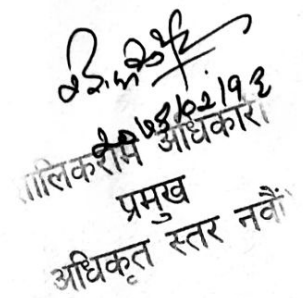 २०७६।०२।१६
शालिकराम अधिकारी
प्रमुख
अधिकृत स्तर नवौं